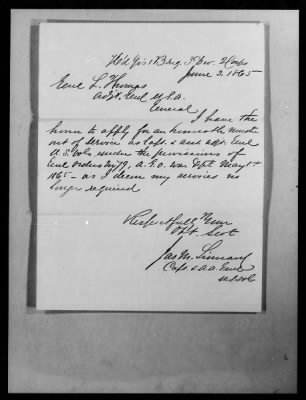 Hd Qrs 1 Brig. 3 Div. 2 Corps
June 3. 1865
Genl L. Thomas
Adjt. Genl U.S.A.
General
I have the
honor to apply for an honorable muster
out of service as Capt. & asst adjt. Genl
U.S. Vols under the provisions of
Genl orders No 79, A.G.O. War Dept. May 1st
1865 - as I deem my services no
longer required
Respectfully
Obt. Svt
Jas M.
Capt & A.A. Genl
U.S. Vol